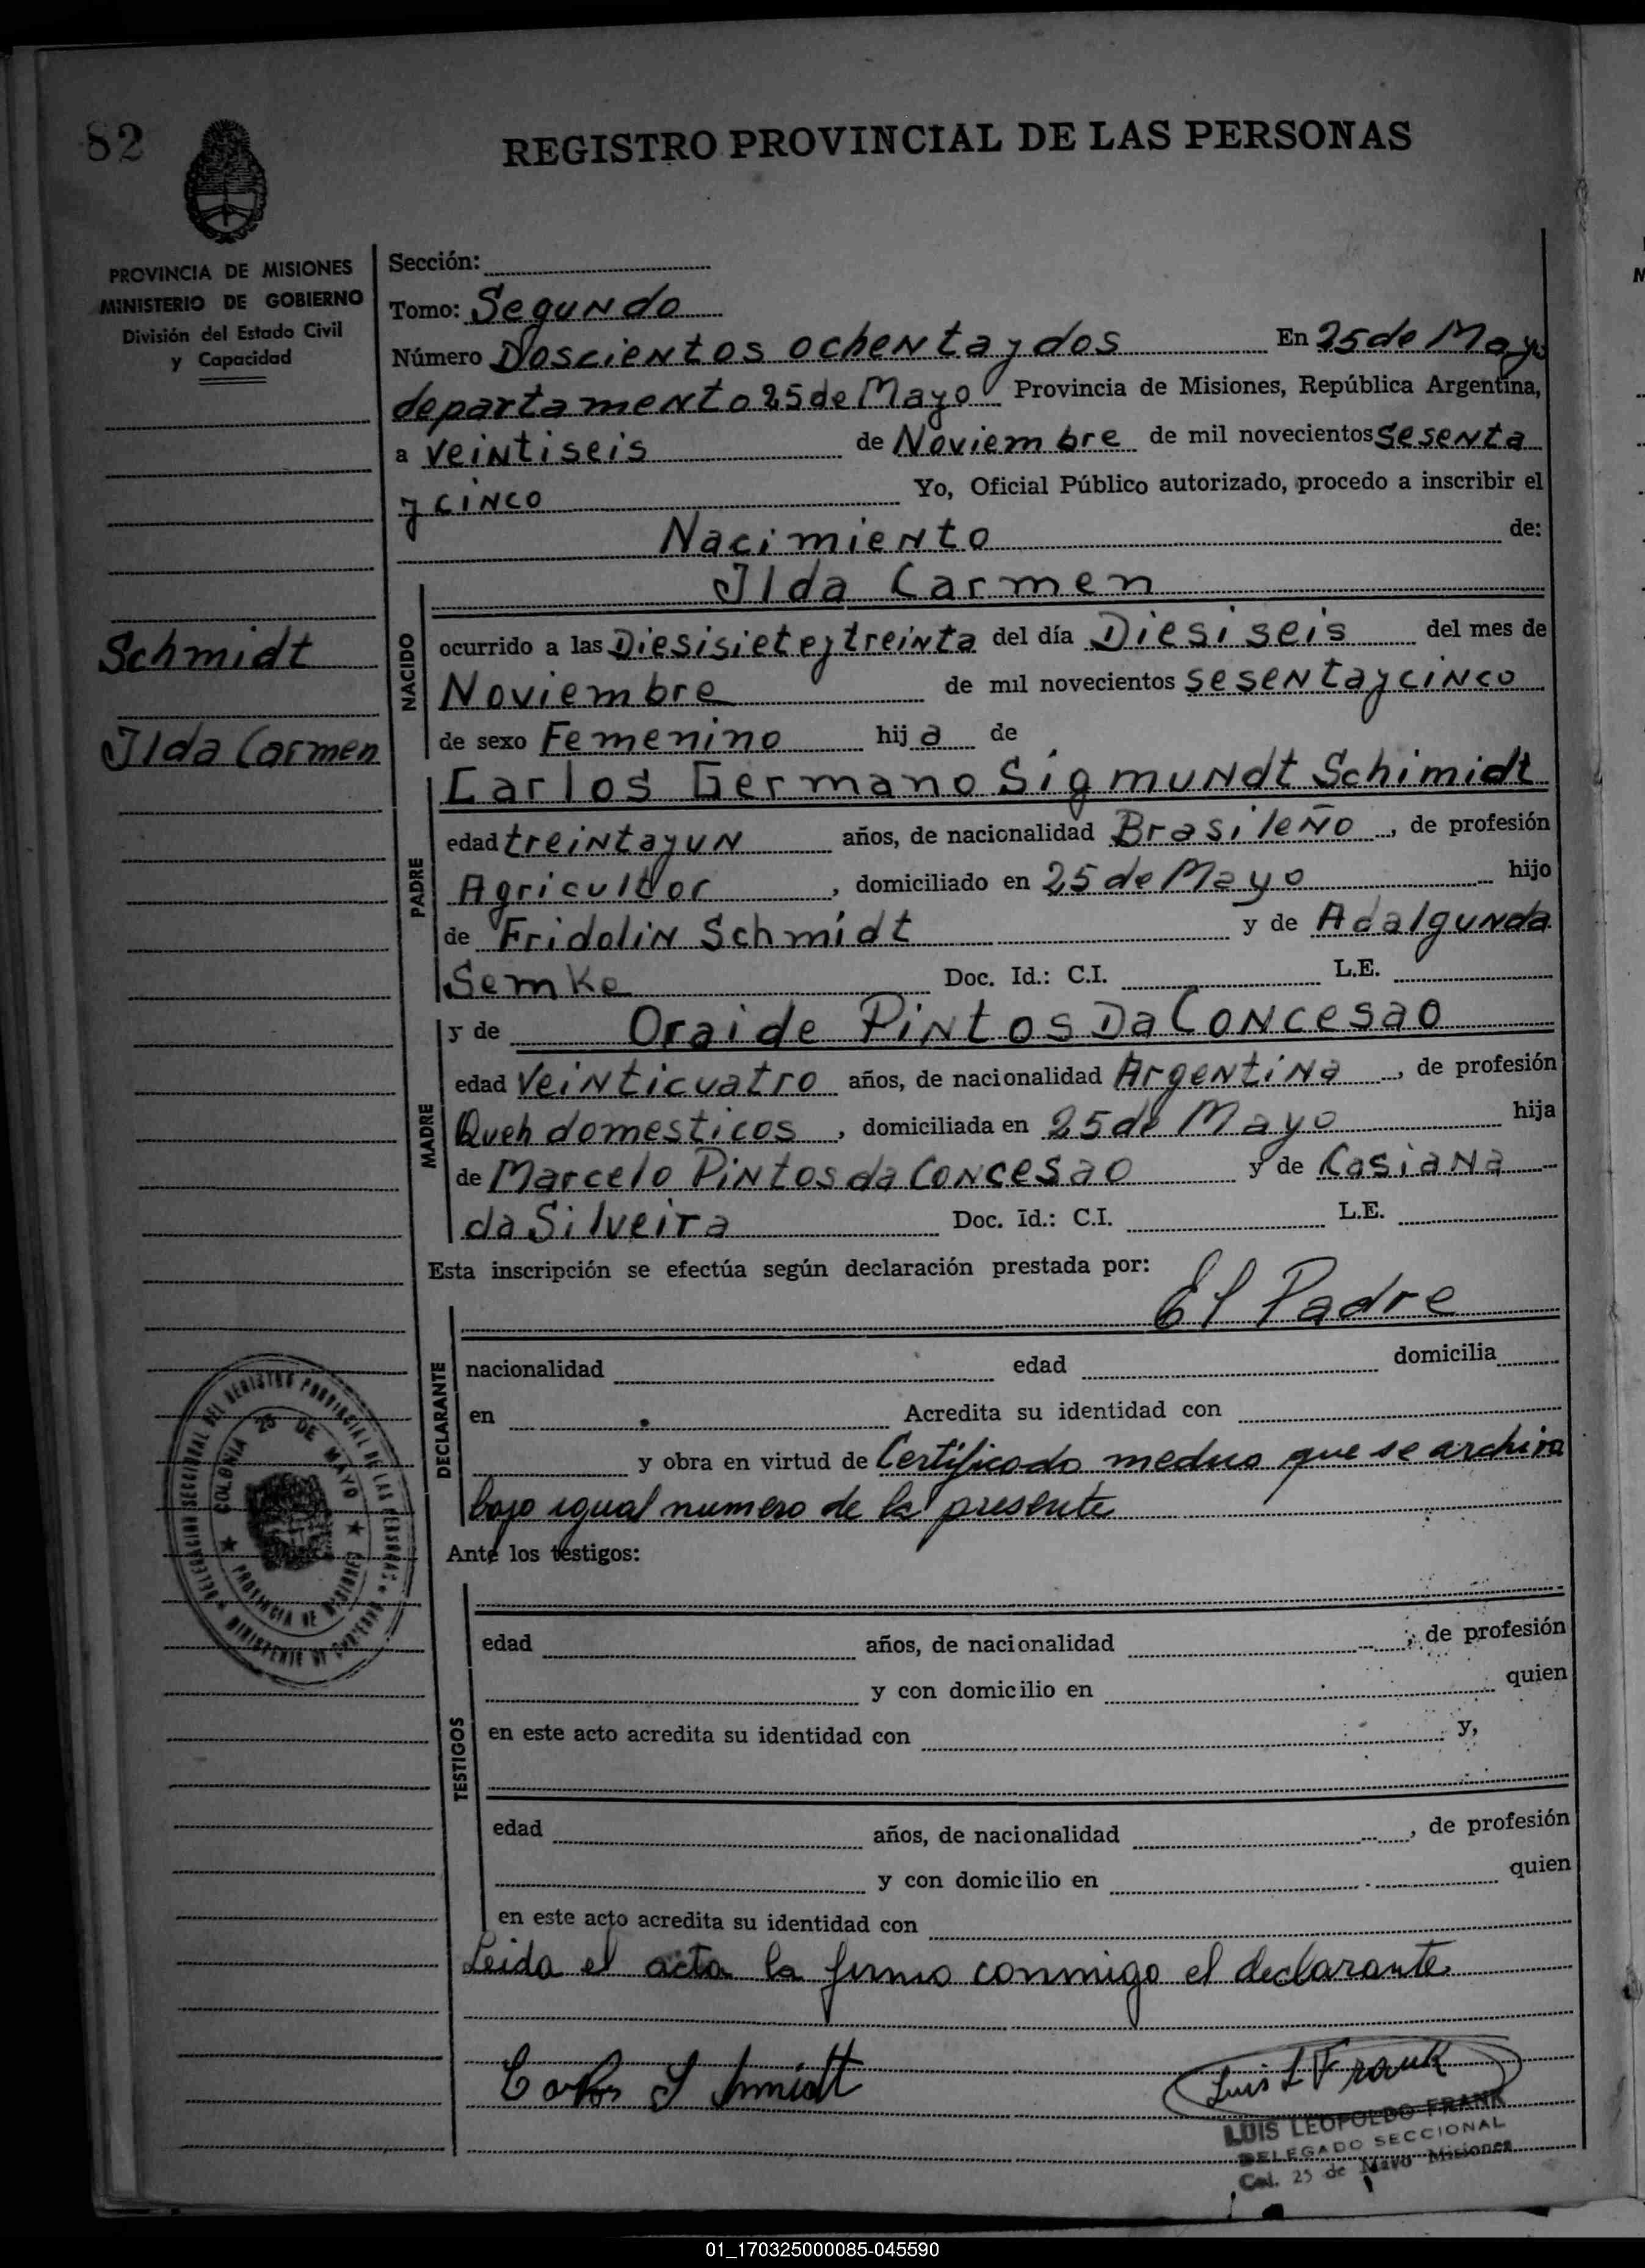 82
REGISTRO PROVINCIAL DE LAS PERSONAS
PROVINCIA DE MISIONES
MINISTERIO DE GOBIERNO
División del Estado Civil
y Capacidad
Schmidt
Ilda Carmen
Sección:
Tomo: Segundo
Número Doscientos ochenta y dos En 25 de Mayo
departamento 25 de Mayo Provincia de Misiones, República Argentina,
a veintiseis de Noviembre de mil novecientos sesenta
y cinco Yo, Oficial Público autorizado, procedo a inscribir el
Nacimiento de:
NACIDO
Ilda Carmen
ocurrido a las Diesisiete y treinta del día Diesiseis del mes de
Noviembre de mil novecientos sesenta y cinco
de sexo Femenino hija de
PADRE
Carlos Germano Sigmundt Schimidt
edad treinta y un años, de nacionalidad Brasileño, de profesión
Agricultor, domiciliado en 25 de Mayo hijo
de Fridolin Schmidt y de Adalgunda
Semke Doc. Id.: C.I. L.E.
MADRE
y de Oraide Pintos Da Concesao
edad veinticuatro años, de nacionalidad Argentina, de profesión
Queh domesticos, domiciliada en 25 de Mayo hija
de Marcelo Pintos da Concesao y de Casiana
da Silveira Doc. Id.: C.I. L.E.
Esta inscripción se efectúa según declaración prestada por:
DECLARANTE
El Padre
nacionalidad edad domicilia
en Acredita su identidad con
y obra en virtud de Certificado medico que se archiva
bajo igual numero de la presente
Ante los testigos:
TESTIGOS
edad años, de nacionalidad , de profesión
y con domicilio en quien
en este acto acredita su identidad con y,
edad años, de nacionalidad , de profesión
y con domicilio en quien
en este acto acredita su identidad con
Leida el acta la firma conmigo el declarante.
Carlos S chmidt
Luis L Frank
LUIS LEOPOLDO FRANK
DELEGADO SECCIONAL
Col. 25 de Mayo Misiones
DELEGACION SECCIONAL DEL REGISTRO PROVINCIAL DE LAS PERSONAS
MINISTERIO DE GOBIERNO
COLONIA 25 DE MAYO
PROVINCIA DE MISIONES
01_170325000085-045590